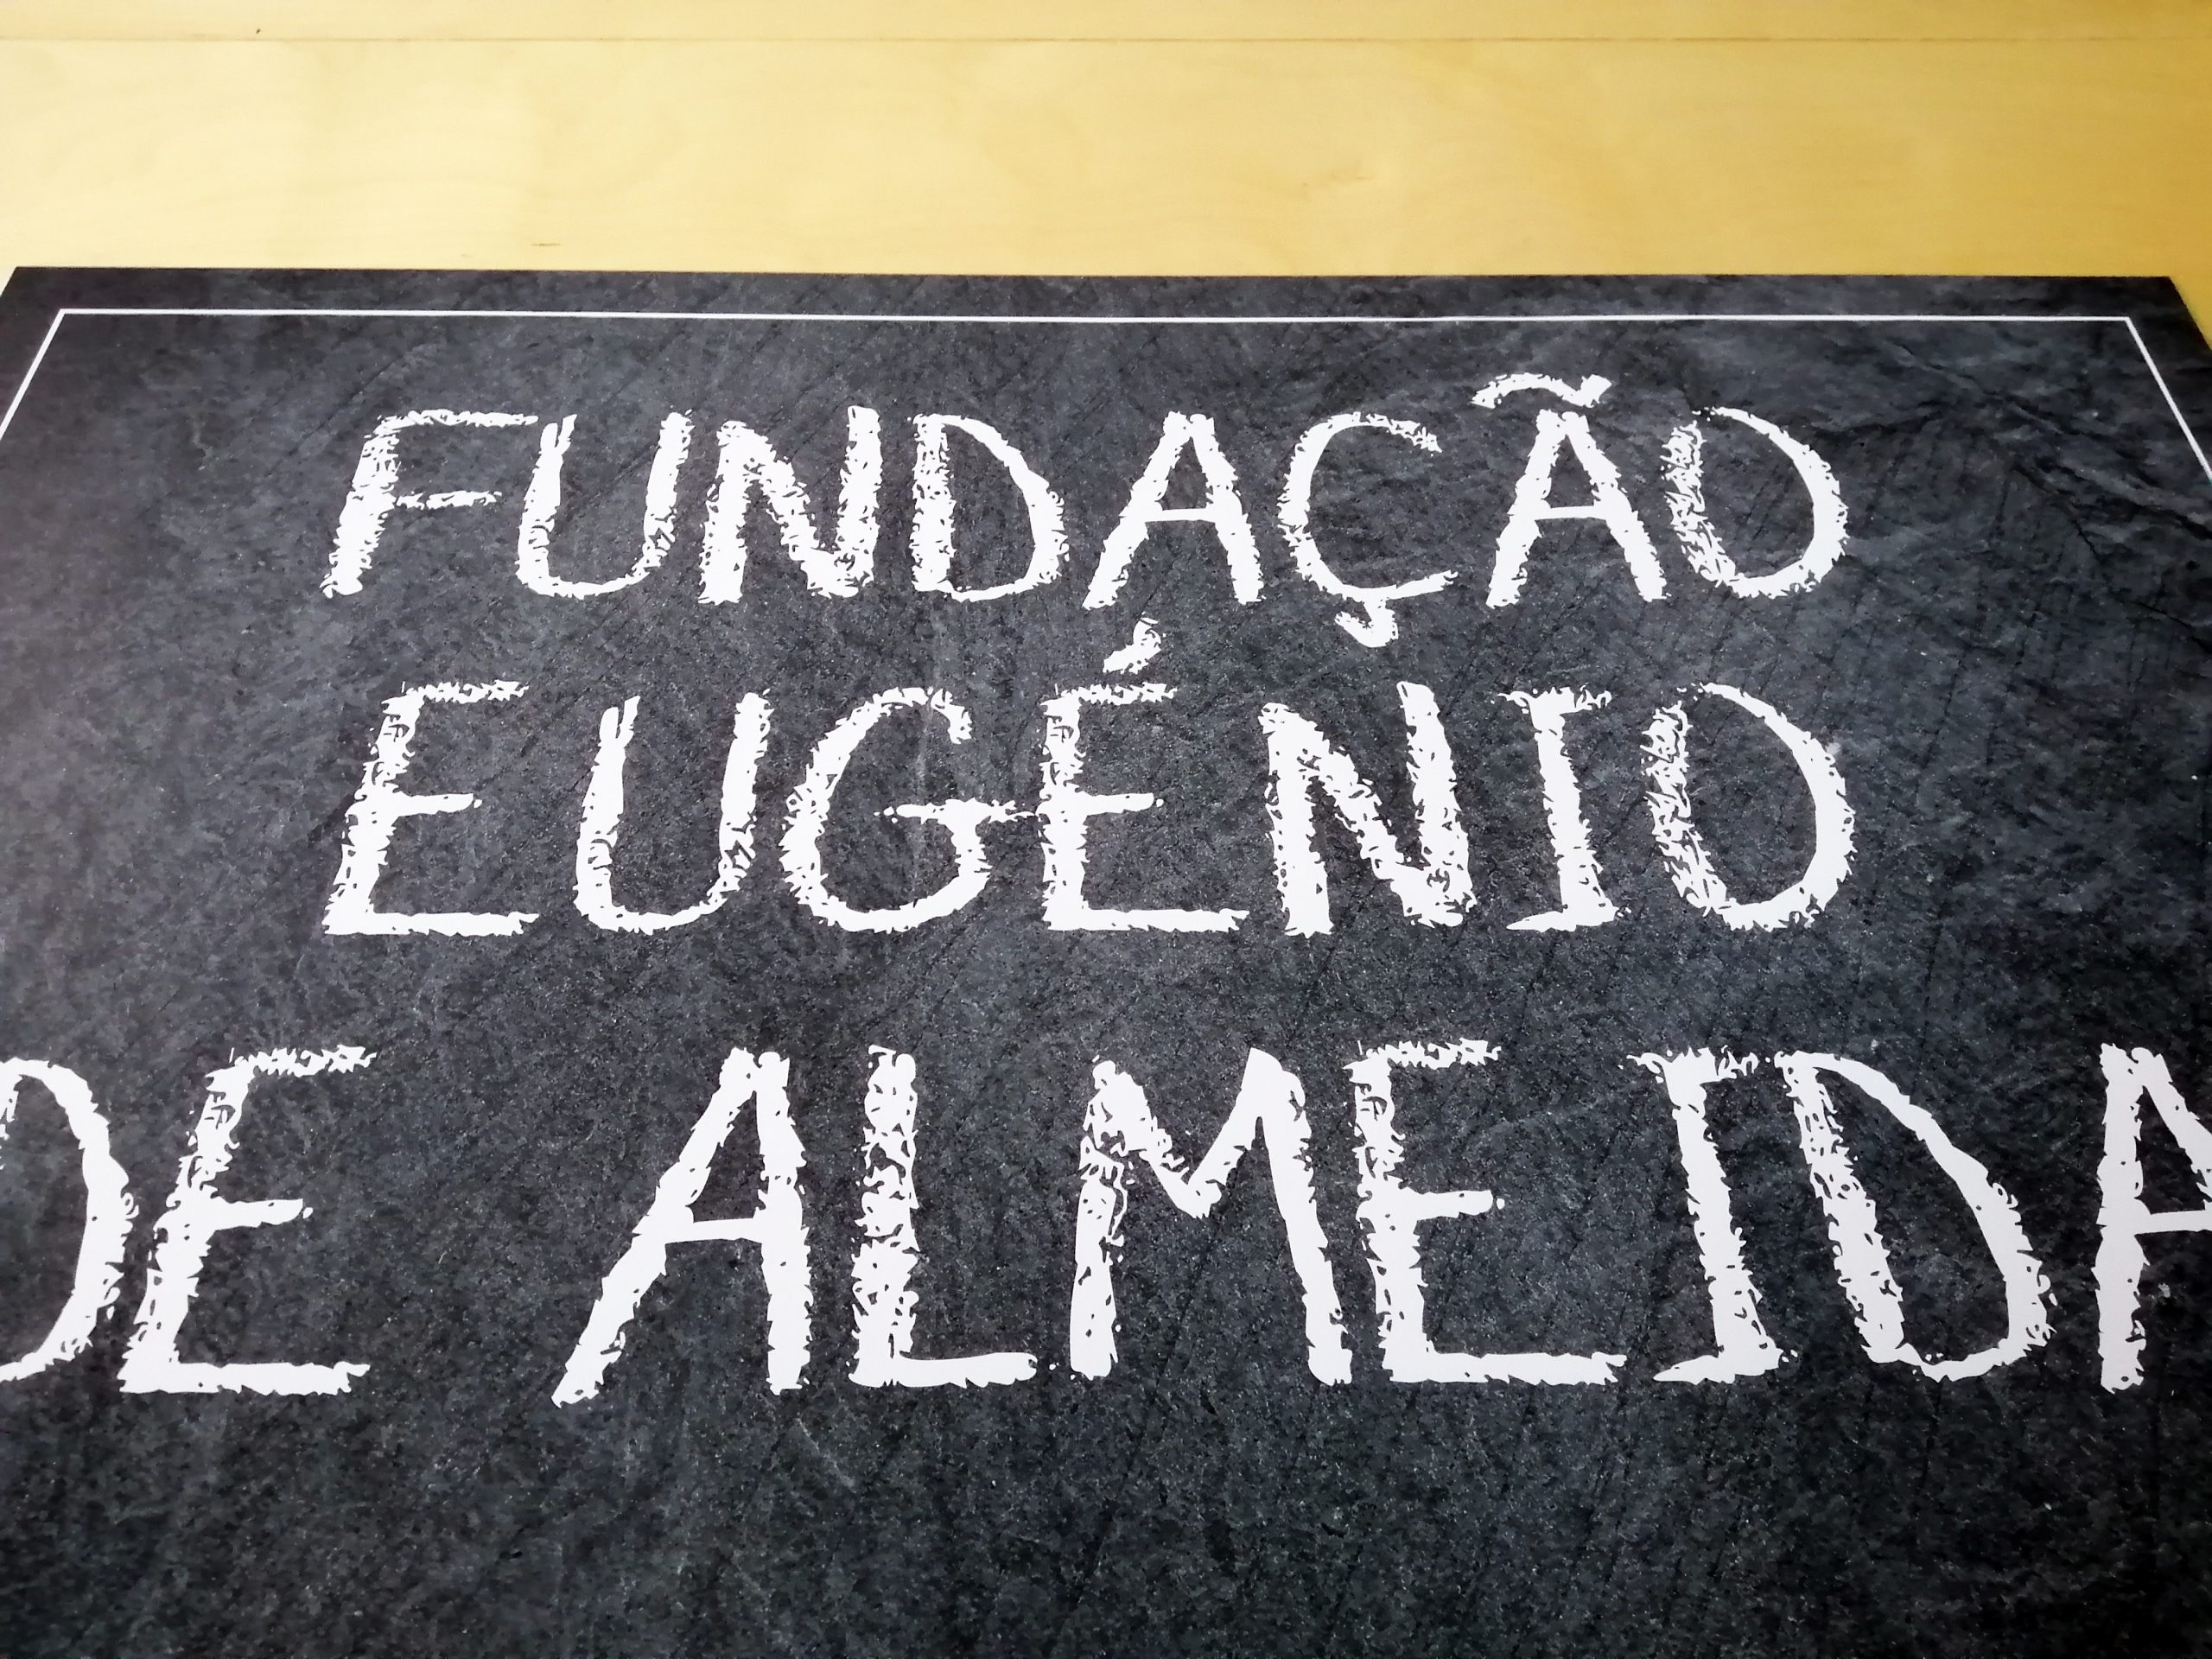 FUNDAÇÃO
EUGÉNIO
DE ALMEIDA